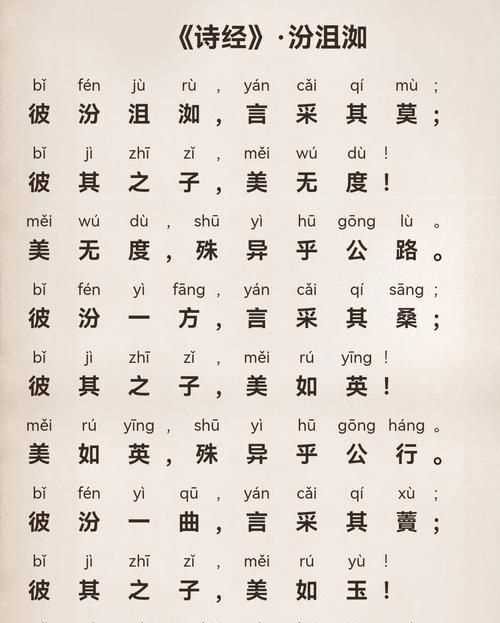 《诗经》·汾沮洳
bǐ fén jù rù , yán cǎi qí mù ;
彼汾沮洳，言采其莫；
bǐ jì zhī zǐ , měi wú dù !
彼其之子，美无度！
měi wú dù , shū yì hū gōng lù 。
美无度，殊异乎公路。
bǐ fén yì fāng , yán cǎi qí sāng ;
彼汾一方，言采其桑；
bǐ jì zhī zǐ , měi rú yīng !
彼其之子，美如英！
měi rú yīng , shū yì hū gōng háng 。
美如英，殊异乎公行。
bǐ fén yì qū , yán cǎi qí xù ;
彼汾一曲，言采其藚；
bǐ jì zhī zǐ , měi rú yù !
彼其之子，美如玉！